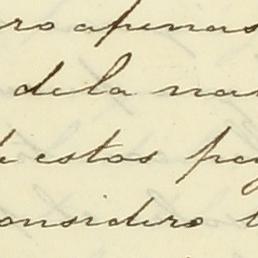 ro apenas
dela na
estos pa
onsidero